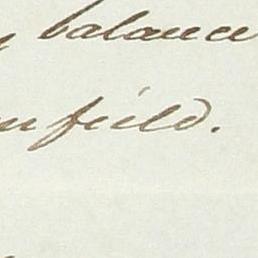 balance
field.